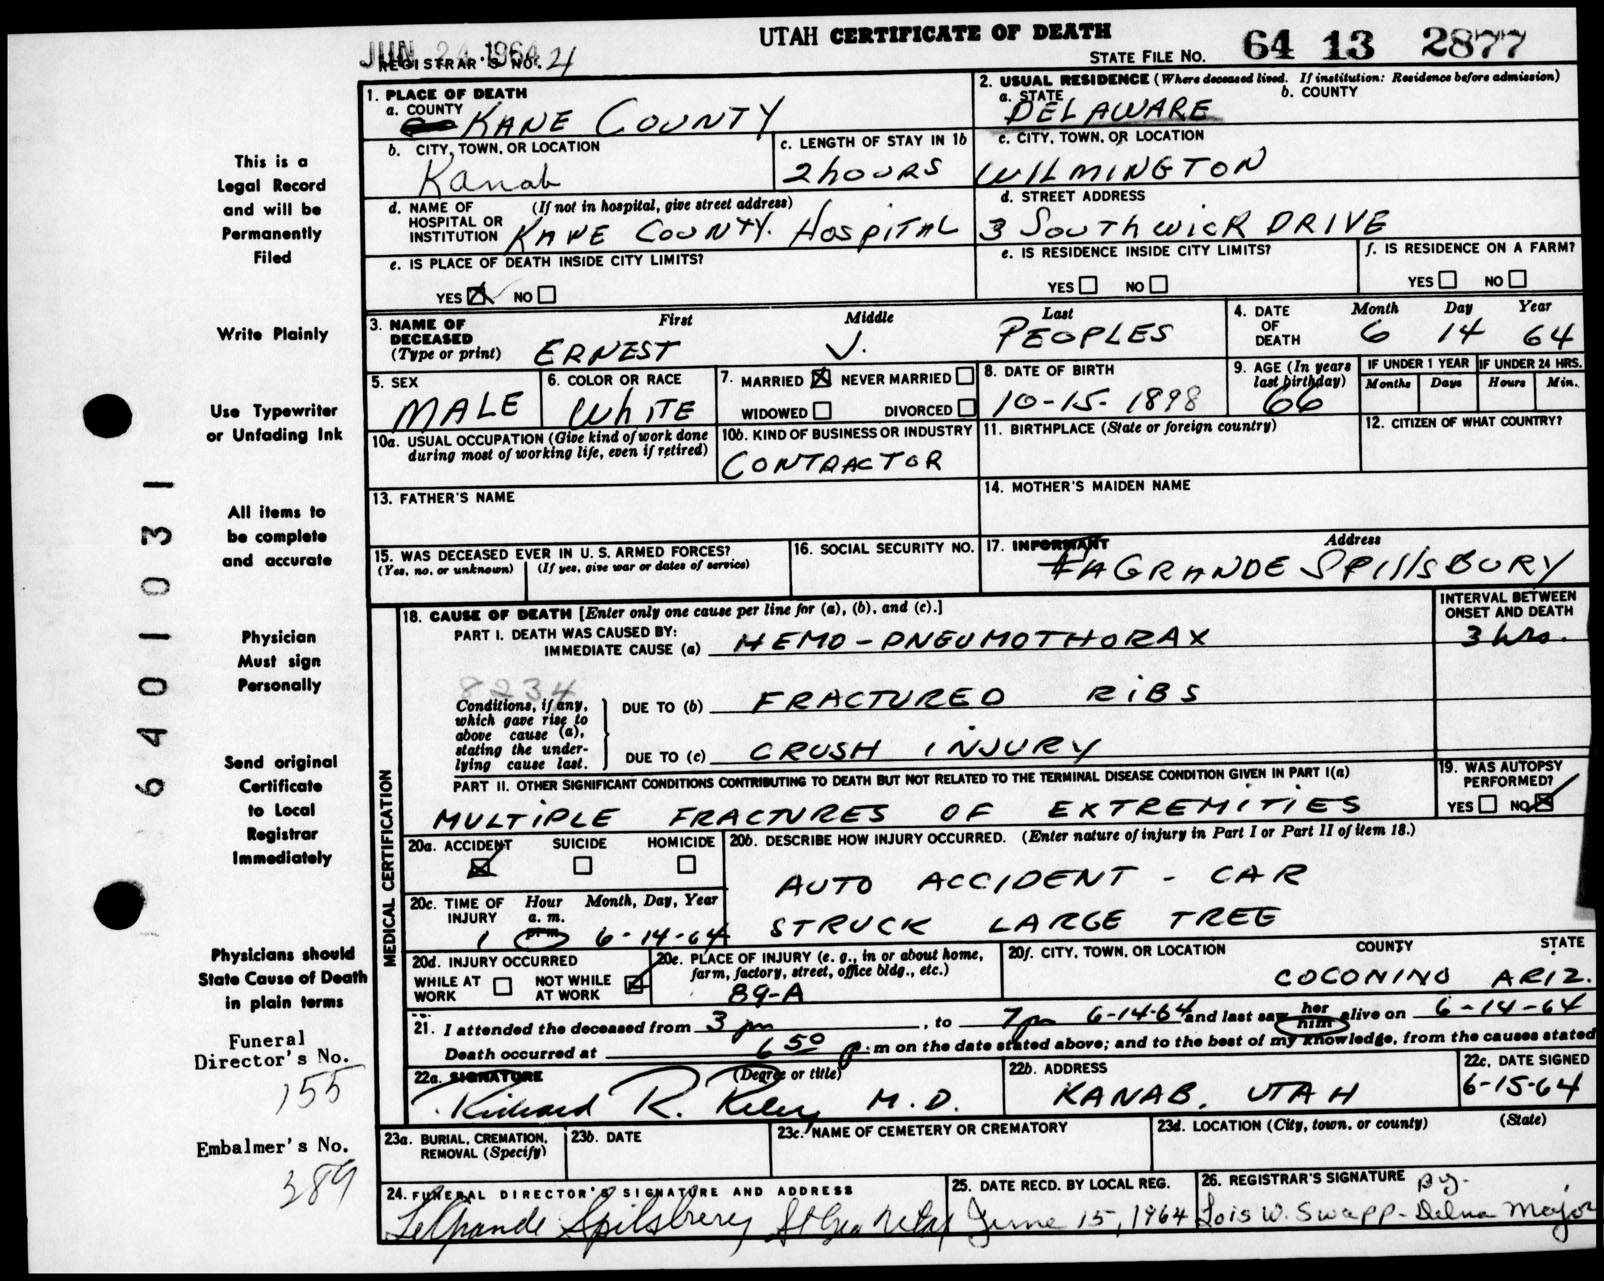 UTAH CERTIFICATE OF DEATH
JUN 24 1964
REGISTRAR'S NO. 21
STATE FILE NO. 64 13 2877
1. PLACE OF DEATH
a. COUNTY
KANE COUNTY
2. USUAL RESIDENCE (Where deceased lived. If institution: Residence before admission)
a. STATE
b. COUNTY
DELAWARE
b. CITY, TOWN, OR LOCATION
Kanab
c. LENGTH OF STAY IN 1b
2 hours
c. CITY, TOWN, OR LOCATION
WILMINGTON
d. NAME OF HOSPITAL OR INSTITUTION
(If not in hospital, give street address)
KANE COUNTY. HOSPITAL
d. STREET ADDRESS
3 SOUTHWICK DRIVE
e. IS PLACE OF DEATH INSIDE CITY LIMITS?
YES NO
e. IS RESIDENCE INSIDE CITY LIMITS?
YES NO
f. IS RESIDENCE ON A FARM?
YES NO
3. NAME OF DECEASED (Type or print)
First Middle Last
ERNEST V. PEOPLES
4. DATE OF DEATH
Month Day Year
6 14 64
5. SEX
MALE
6. COLOR OR RACE
WHITE
7. MARRIED NEVER MARRIED
WIDOWED DIVORCED
8. DATE OF BIRTH
10-15-1898
9. AGE (In years last birthday)
66
IF UNDER 1 YEAR
Months Days
IF UNDER 24 HRS.
Hours Min.
10a. USUAL OCCUPATION (Give kind of work done during most of working life, even if retired)
10b. KIND OF BUSINESS OR INDUSTRY
CONTRACTOR
11. BIRTHPLACE (State or foreign country)
12. CITIZEN OF WHAT COUNTRY?
13. FATHER'S NAME
14. MOTHER'S MAIDEN NAME
15. WAS DECEASED EVER IN U. S. ARMED FORCES?
(Yes, no, or unknown) (If yes, give war or dates of service)
16. SOCIAL SECURITY NO.
17. INFORMANT Address
LAGRANDE SPILLSBURY
MEDICAL CERTIFICATION
18. CAUSE OF DEATH [Enter only one cause per line for (a), (b), and (c).]
INTERVAL BETWEEN ONSET AND DEATH
PART I. DEATH WAS CAUSED BY:
IMMEDIATE CAUSE (a) HEMO-PNEUMOTHORAX
3 hrs.
8234
Conditions, if any,
which gave rise to
above cause (a),
stating the under-
lying cause last.
DUE TO (b) FRACTURED RIBS
DUE TO (c) CRUSH INJURY
PART II. OTHER SIGNIFICANT CONDITIONS CONTRIBUTING TO DEATH BUT NOT RELATED TO THE TERMINAL DISEASE CONDITION GIVEN IN PART I(a)
MULTIPLE FRACTURES OF EXTREMITIES
19. WAS AUTOPSY PERFORMED?
YES NO
20a. ACCIDENT SUICIDE HOMICIDE
20b. DESCRIBE HOW INJURY OCCURRED. (Enter nature of injury in Part I or Part II of item 18.)
AUTO ACCIDENT - CAR
STRUCK LARGE TREE
20c. TIME OF INJURY
Hour Month, Day, Year
a. m.
p. m.
1 6-14-64
20d. INJURY OCCURRED
WHILE AT WORK NOT WHILE AT WORK
20e. PLACE OF INJURY (e. g., in or about home, farm, factory, street, office bldg., etc.)
89-A
20f. CITY, TOWN, OR LOCATION COUNTY STATE
COCONINO ARIZ.
21. I attended the deceased from 3 pm, to 7 pm 6-14-64 and last saw her him alive on 6-14-64
Death occurred at 6 50 p. m on the date stated above; and to the best of my knowledge, from the causes stated
22a. SIGNATURE (Degree or title)
Richard R. Riley M.D.
22b. ADDRESS
KANAB, UTAH
22c. DATE SIGNED
6-15-64
23a. BURIAL, CREMATION, REMOVAL (Specify)
23b. DATE
23c. NAME OF CEMETERY OR CREMATORY
23d. LOCATION (City, town, or county) (State)
24. FUNERAL DIRECTOR'S SIGNATURE AND ADDRESS
LeGrande Spilsbury St Geo Utah
25. DATE RECD. BY LOCAL REG.
June 15, 1964
26. REGISTRAR'S SIGNATURE
Lois W. Swapp - By. Delna Major
This is a
Legal Record
and will be
Permanently
Filed
Write Plainly
Use Typewriter
or Unfading Ink
All items to
be complete
and accurate
Physician
Must sign
Personally
Send original
Certificate
to Local
Registrar
Immediately
Physicians should
State Cause of Death
in plain terms
Funeral
Director's No.
155
Embalmer's No.
389
6401031